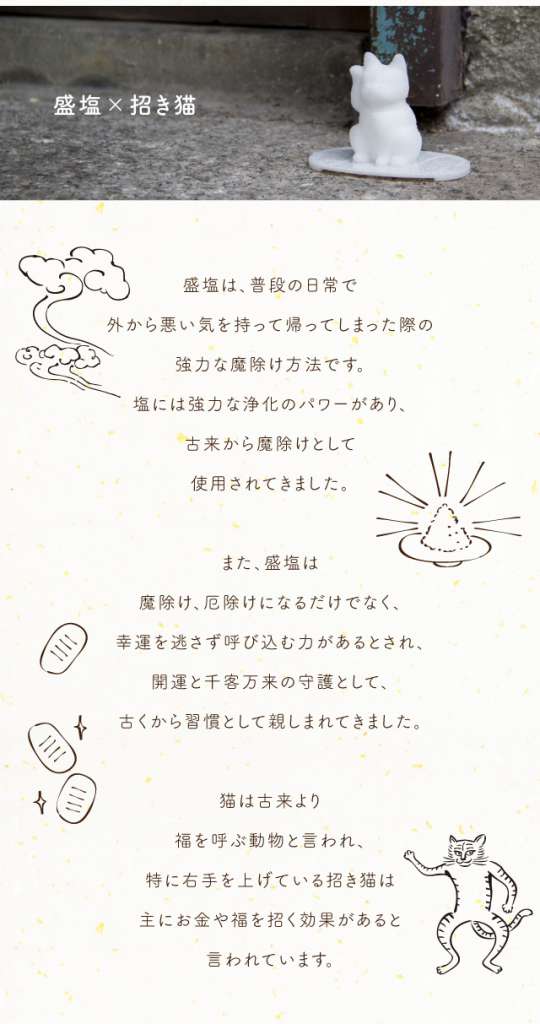 盛塩×招き猫
盛塩は、普段の日常で
外から悪い気を持って帰ってしまった際の
強力な魔除け方法です。
塩には強力な浄化のパワーがあり、
古来から魔除けとして
使用されてきました。
また、盛塩は
魔除け、厄除けになるだけでなく、
幸運を逃さず呼び込む力があるとされ、
開運と千客万来の守護として、
古くから習慣として親しまれてきました。
猫は古来より
福を呼ぶ動物と言われ、
特に右手を上げている招き猫は
主にお金や福を招く効果があると
言われています。